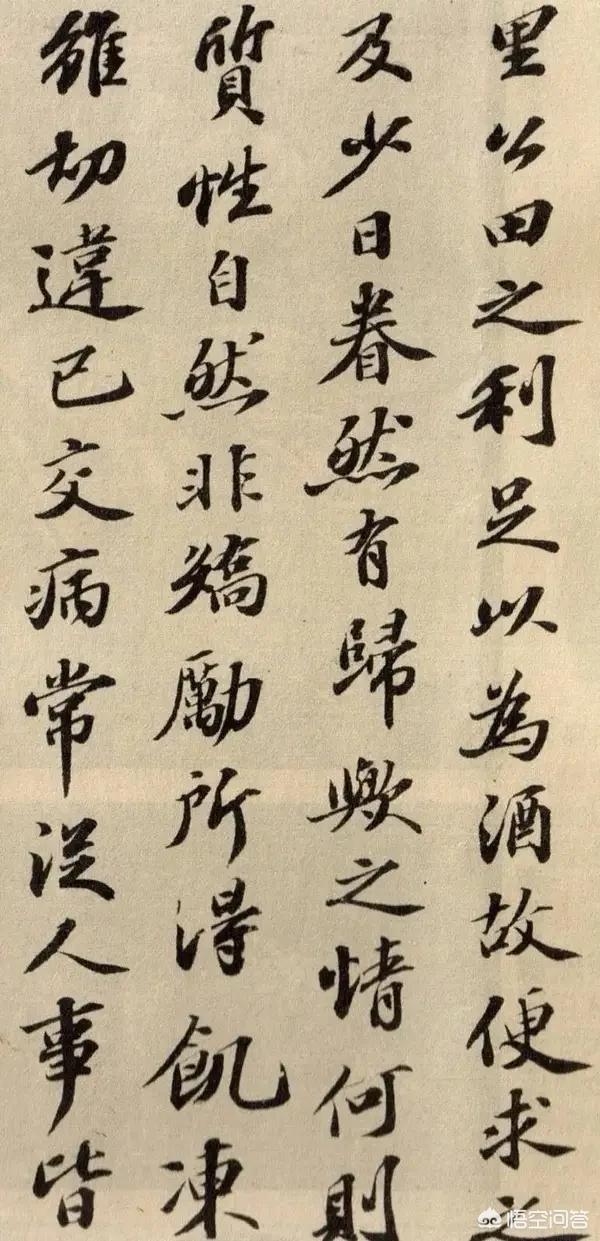 里公田之利足以為酒故便求之
及少日眷然有歸歟之情何則
質性自然非矯勵所得飢凍
雖切違己交病常從人事皆
悟空问答